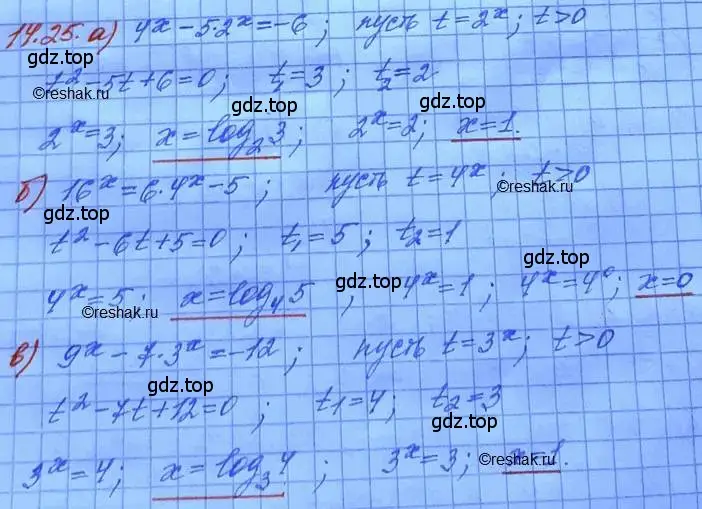 14.25. а) 4ˣ - 5·2ˣ = -6; пусть t = 2ˣ; t > 0
gdz.top
t² - 5t + 6 = 0; t₁ = 3; t₂ = 2
©reshak.ru gdz.top gdz.top
2ˣ = 3; x = log₂3; 2ˣ = 2; x = 1.
б) 16ˣ = 6·4ˣ - 5; пусть t = 4ˣ; t > 0
gdz.top ©reshak.ru
t² - 6t + 5 = 0; t₁ = 5; t₂ = 1
gdz.top gdz.top
4ˣ = 5; x = log₄5, 4ˣ = 1; 4ˣ = 4⁰; x = 0
©reshak.ru
в) 9ˣ - 7·3ˣ = -12; пусть t = 3ˣ; t > 0
gdz.top
t² - 7t + 12 = 0; t₁ = 4; t₂ = 3
gdz.top
3ˣ = 4; x = log₃4; 3ˣ = 3; ©reshak.ru x = 1.
gdz.top